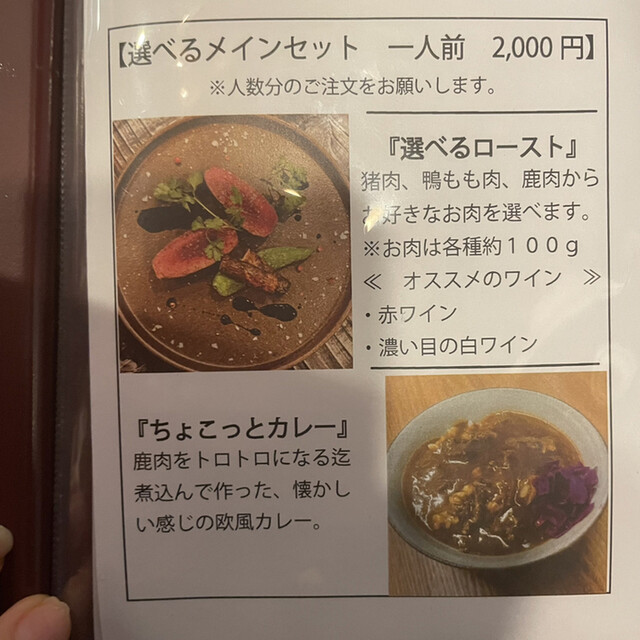 【選べるメインセット　一人前　2,000 円】
※人数分のご注文をお願いします。
『選べるロースト』
猪肉、鴨もも肉、鹿肉から
お好きなお肉を選べます。
※お肉は各種約１００ｇ
≪　オススメのワイン　≫
・赤ワイン
・濃い目の白ワイン
『ちょこっとカレー』
鹿肉をトロトロになる迄
煮込んで作った、懐かし
い感じの欧風カレー。